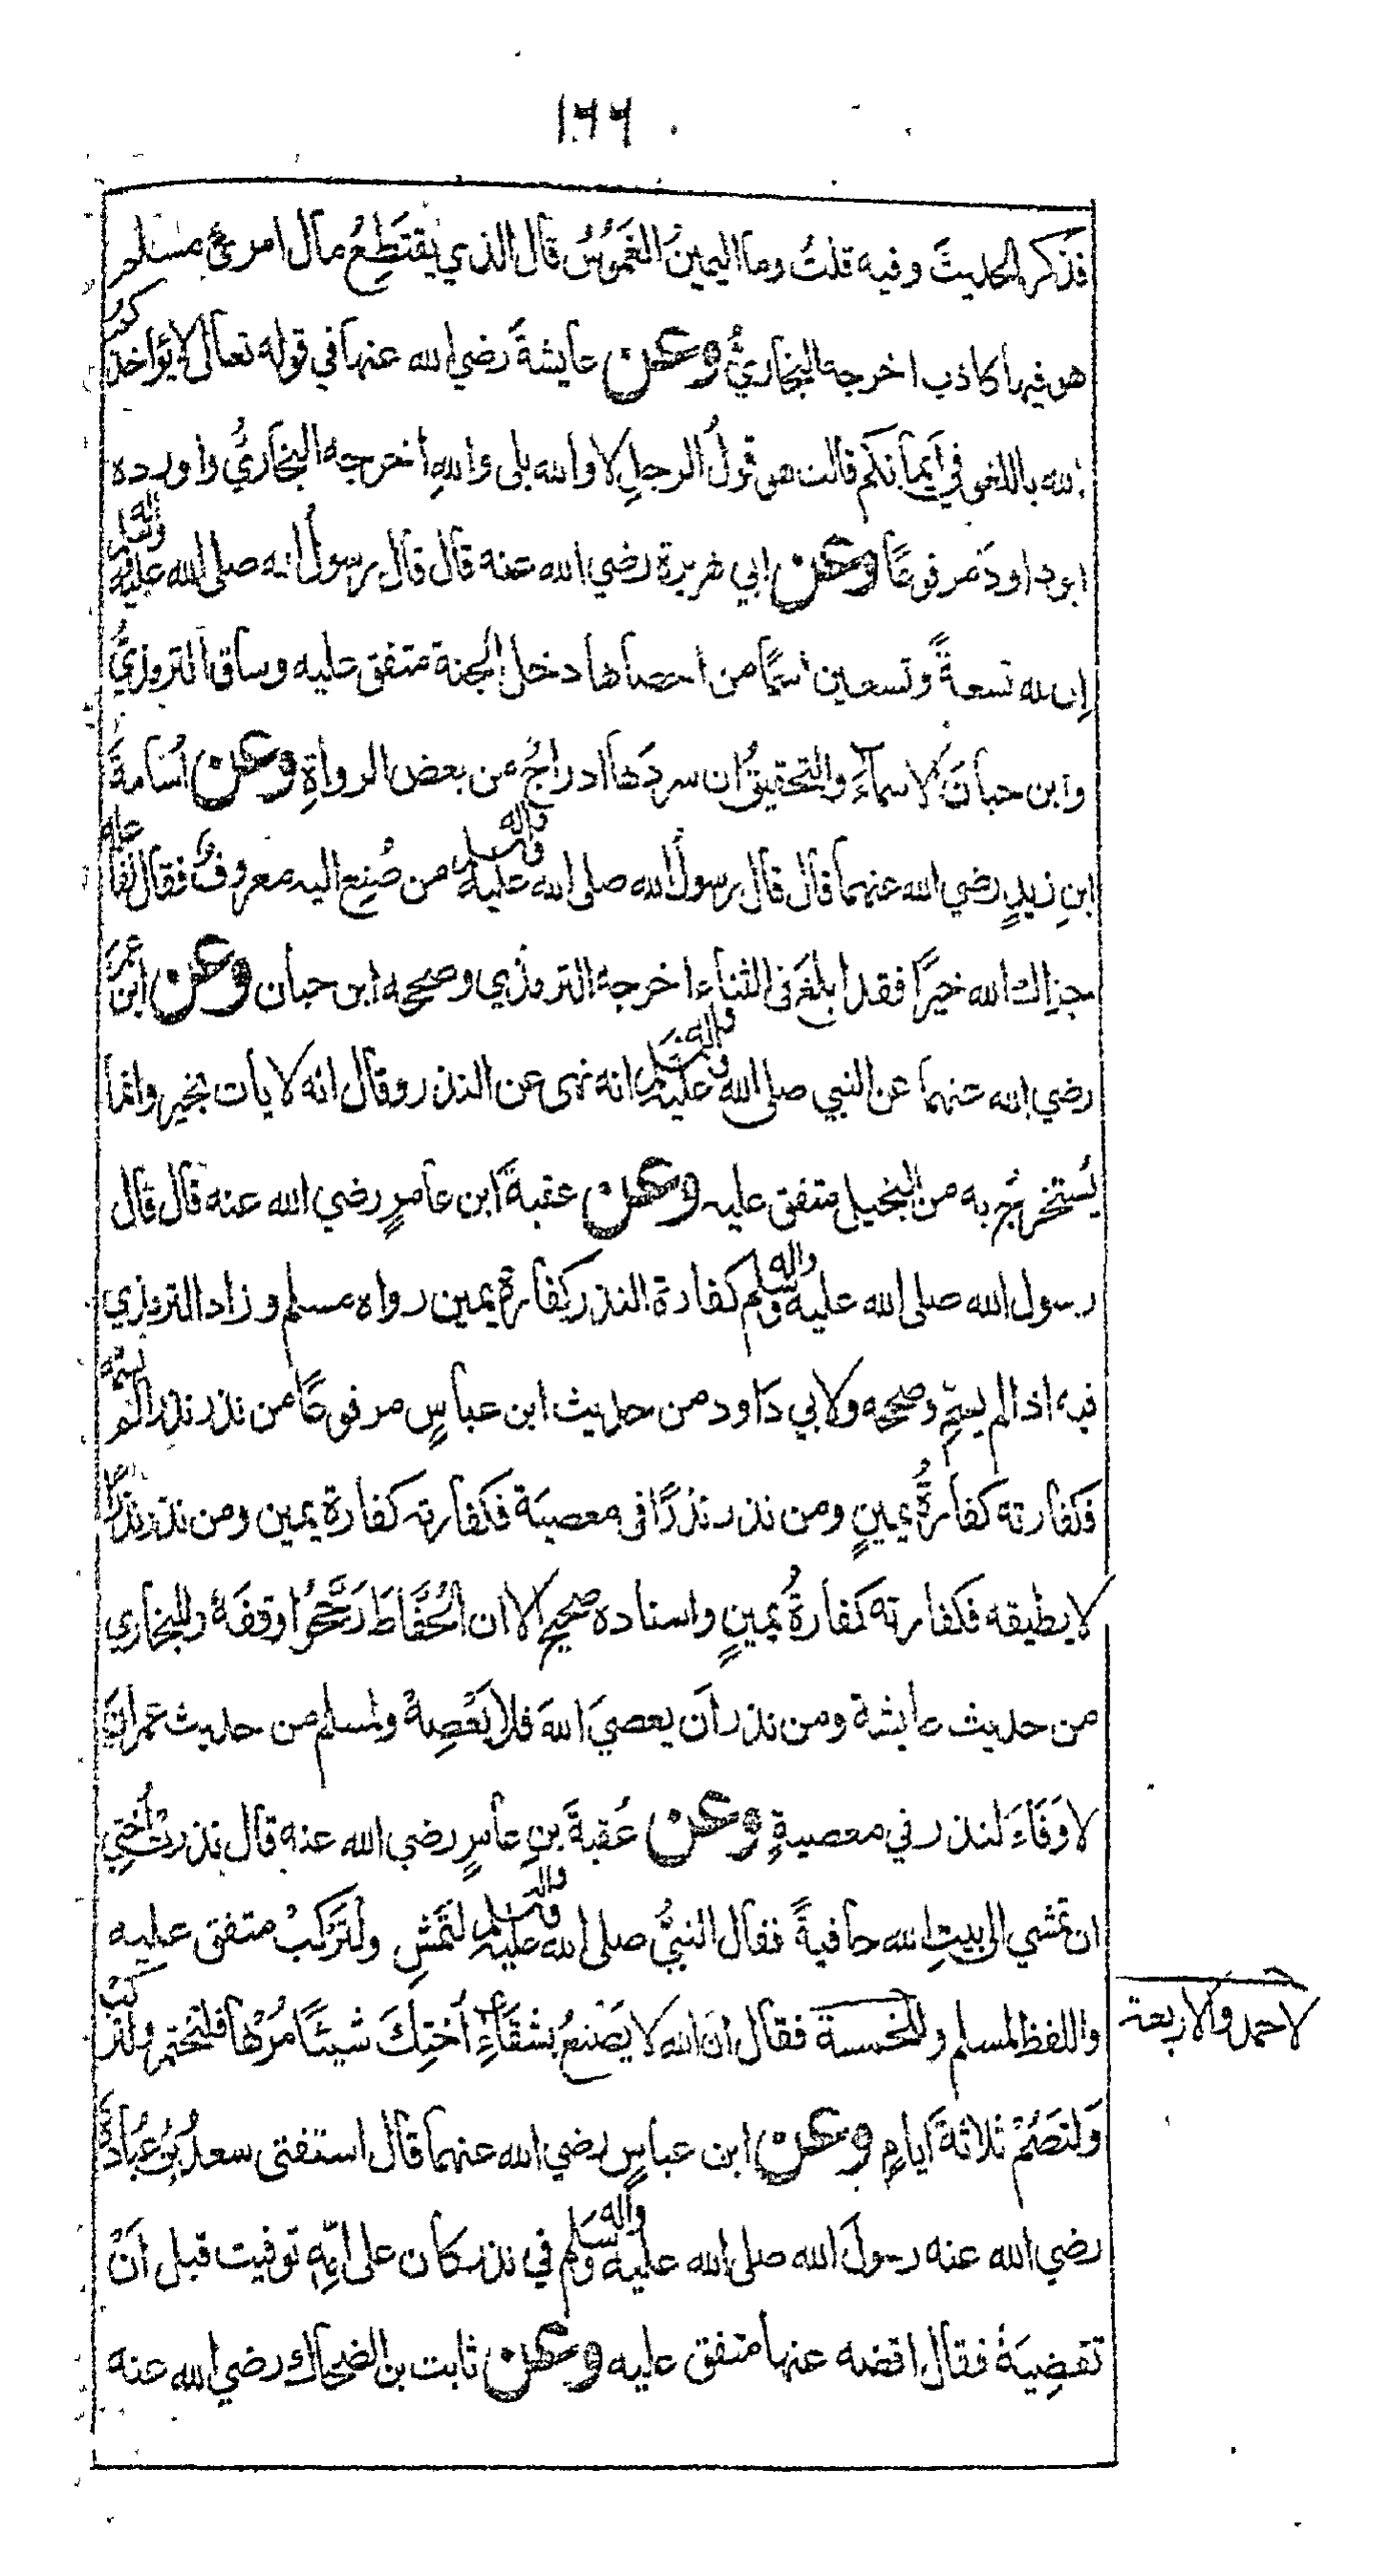 ١٩٩
فذكر الحديثَ وفيه قلتُ وما اليمينُ الغَمُوْسُ قال الذي يَقتَطِعُ مال امرئٍ مسلم
هو فيها كاذب اخرجه البخاريُّ وعن عايشةَ رضي الله عنها في قوله تعالى لا يؤاخذكمُ
الله باللغو في اَيمانكم قالت هو قولُ الرجلِ لا والله بلى واللهِ اخرجه البخاريُّ واورده
ابو داودَ مرفوعًا وعن ابي هريرة رضي الله عنه قال قال رسولُ الله صلى الله عليه واله وسلم
اِن لله تسعةً وتسعين اسمًا من احصاها دخل الجنة متفق عليه وساق الترمذيُّ
وابن حبانَ الاسماءَ والتحقيقُ ان سردَها ادراجٌ من بعض الرواةِ وعن اُسامةَ
ابنِ زيدٍ رضي الله عنهما قال قال رسولُ الله صلى الله عليه واله وسلم من صُنِع اليه معروفٌ فقال لفاعله
جزاك الله خيرًا فقد ابلغَ في الثناء اخرجه الترمذي وصححه ابن حبان وعن ابن عمرَ
رضي الله عنهما عن النبي صلى الله عليه واله وسلم انه نهى عن النذر وقال انه لا يأت بخير وانما
يُستخرَجُ به من البخيل متفق عليه وعن عقبةَ ابن عامرٍ رضي الله عنه قال قال
رسول الله صلى الله عليه واله وسلم كفارة النذر كفارة يمين رواه مسلم وزاد الترمذي
فيه اذا لم يسمِّ وصححه ولابي دَاود من حديث ابن عباسٍ مرفوعًا من نذر نذرا لم يسمه
فكفارته كفارةُ يمينٍ ومن نذر نذرًا في معصيَة فكفارته كفارة يمين ومن نذر نذرًا
لا يطيقه فكفارته كفارةُ يمينٍ واسناده صحيح الا ان الحُفّاظَ رَجَّحُوا وقفَهُ وللبخاري
من حديث عايشة ومن نذر اَن يعصيَ اللهَ فلا يَعْصِهْ ولمسلم من حديث عمرانَ
لا وَفَاءَ لنذر في معصيةٍ وعن عُقبةَ بنِ عامرٍ رضي الله عنه قال نذرتْ اُختي
ان تمشي الى بيتِ الله حافيةً فقال النبيُّ صلى الله عليه واله وسلم لتَمْشِ ولْتَرْكبْ متفق عليه
واللفظ لمسلم وللخمسة فقال ان الله لا يَصْنعُ بشقَاءِ اُختِكَ شيئًا مُرْها فلتختمر ولتركبْ
لاحمد والاربعة
وَلتصُمْ ثلاثةَ ايامٍ وعن ابن عباسٍ رضي الله عنهما قال استفتى سعدُ بنُ عُبادةَ
رضي الله عنه رسولَ الله صلى الله عليه واله وسلم في نذر كان على امّهِ توفيت قبل اَنْ
تقضِيَهُ فقال اقضه عنها متفق عليه وعن ثابت بن الضحاك رضي الله عنه